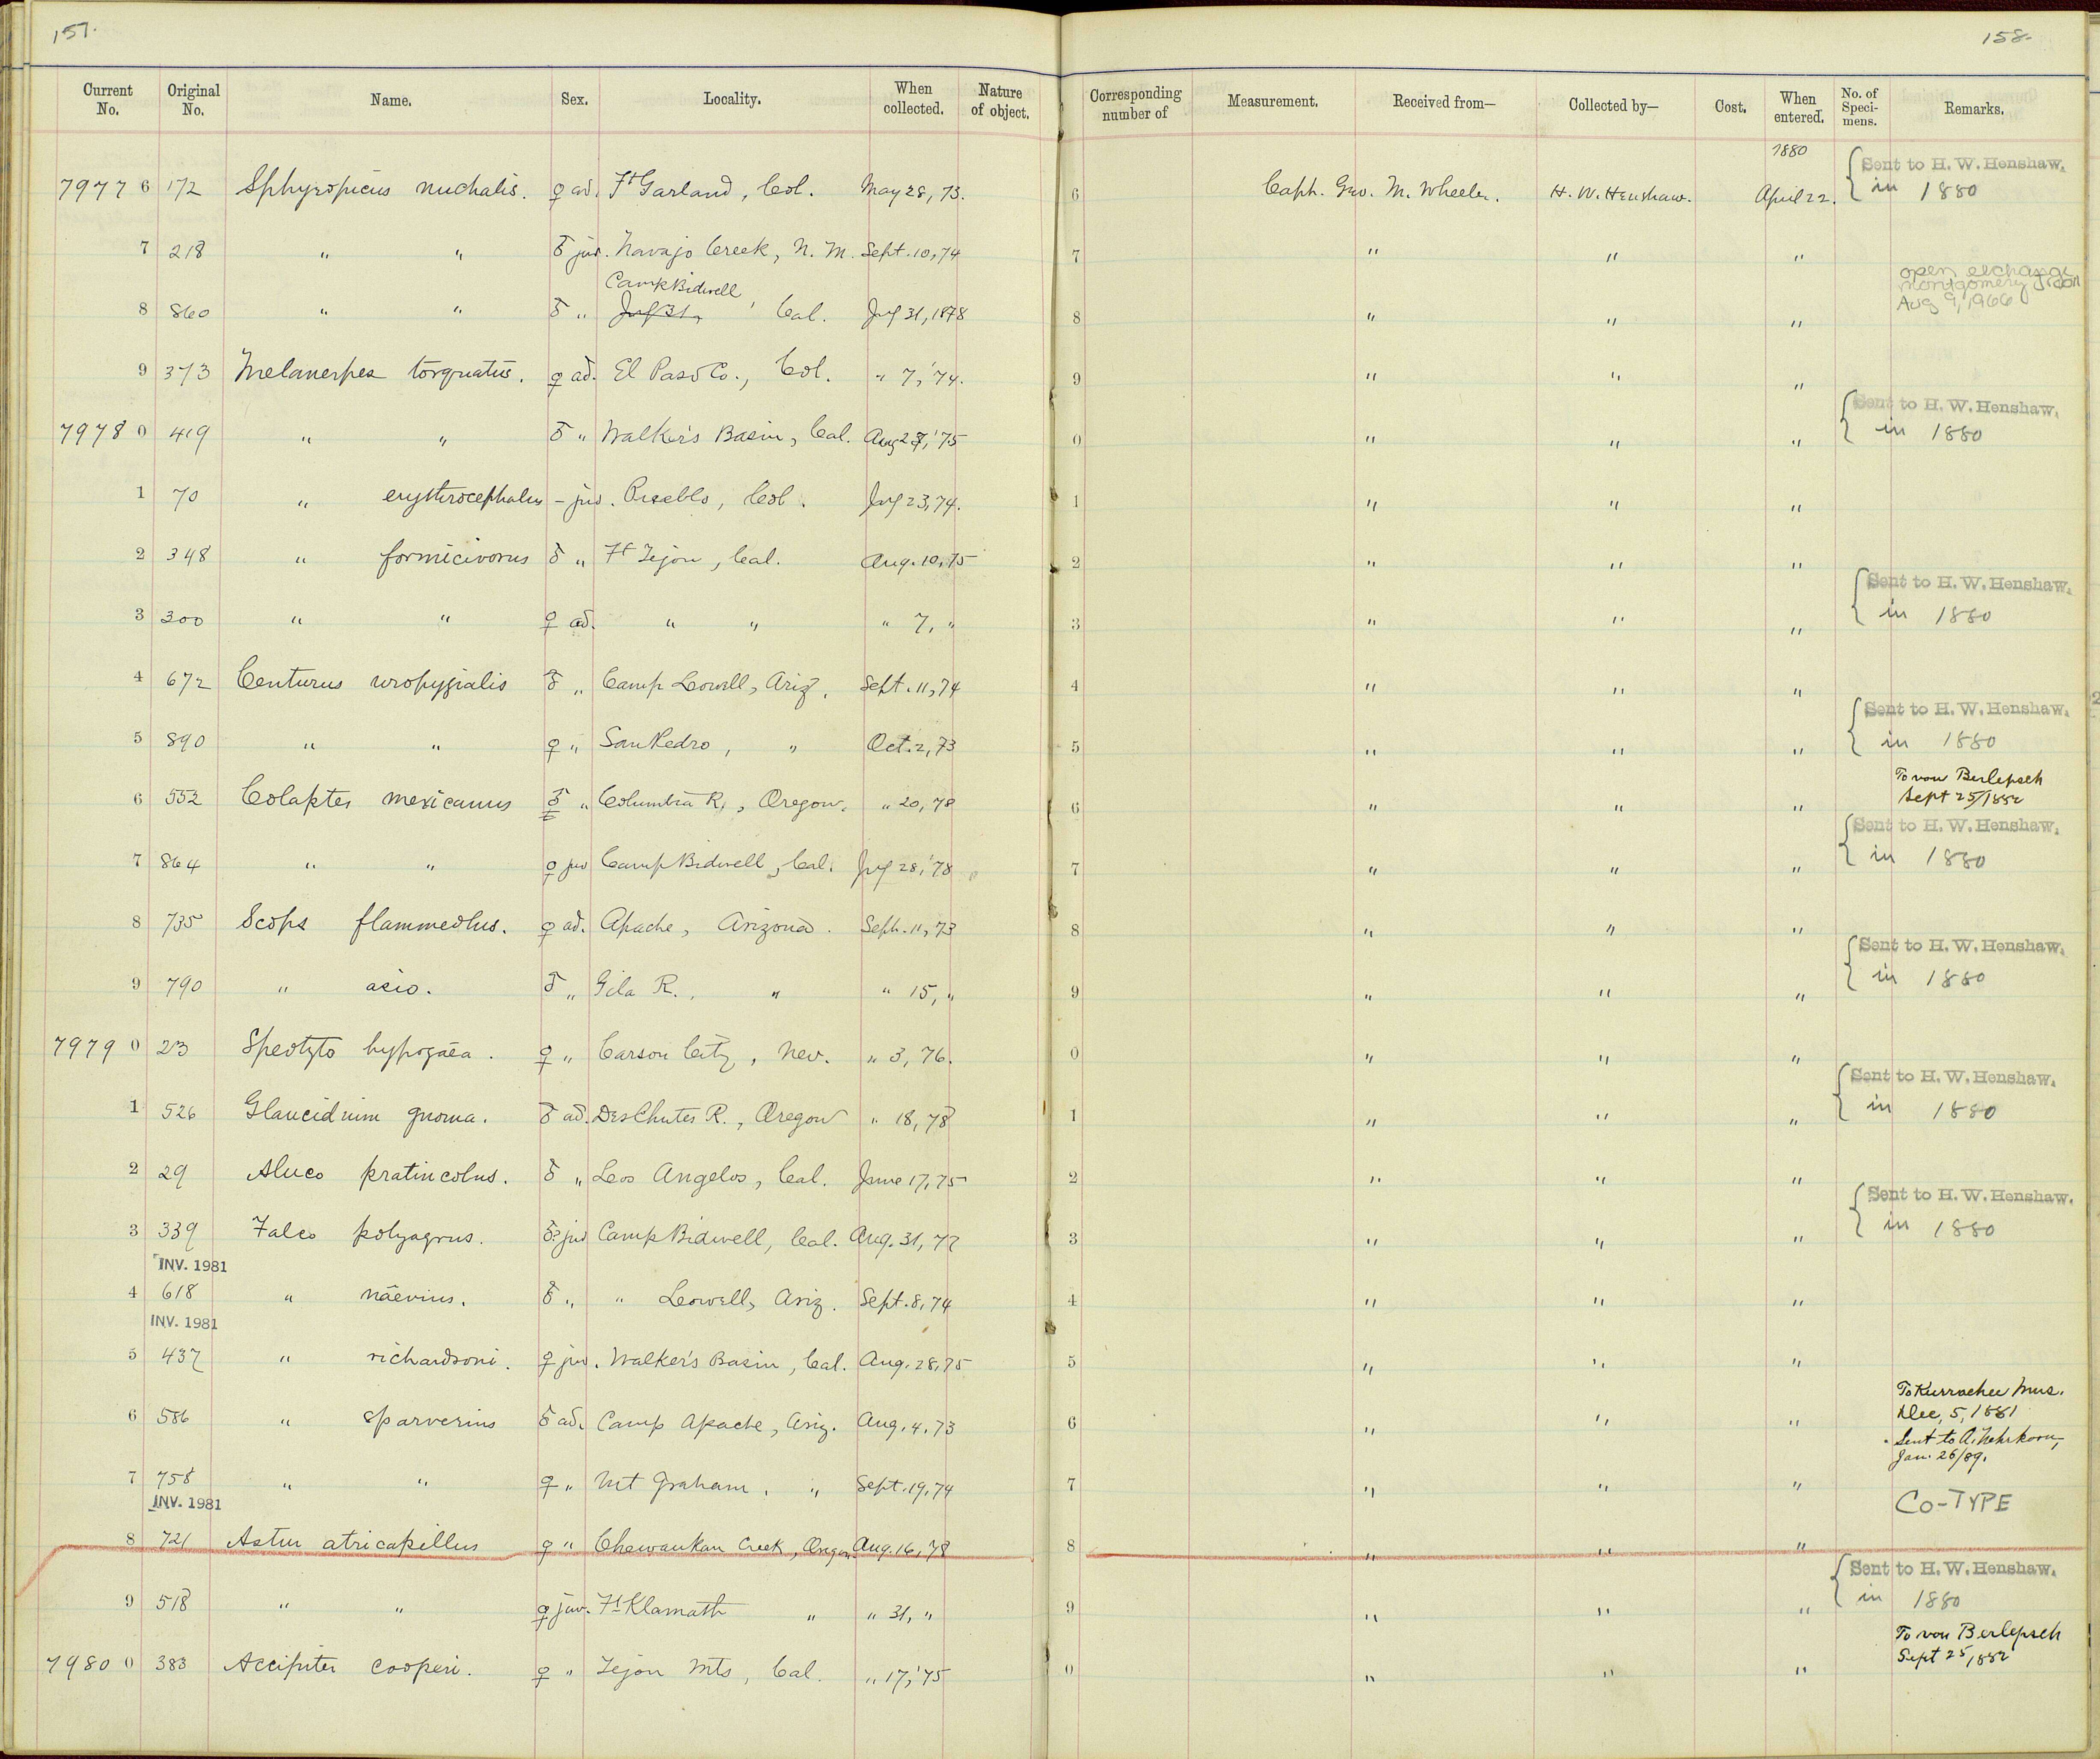 157.
158.
Current No. Original No. Name. Sex. Locality. When collected. Nature of object. Corresponding number of Measurement. Received from— Collected by— Cost. When entered. No. of Specimens. Remarks.
1880
79776 172 Sphyropicus nuchalis. ♀ ad. Ft Garland, Col. May 28, 73. 6 Capt. Geo. M. Wheeler. H. W. Henshaw. April 22. { Sent to H. W. Henshaw. in 1880
7 218 " " ♂ juv. Navajo Creek, N. M. Sept. 10, 74 7 " " "
Camp Bidwell
8 860 " " ♂ " July 31, Cal. July 31, 1878 8 " " " open exchange montgomery Aug 9, 1966
9 373 Melanerpes torquatus. ♀ ad. El Paso Co., Col. " 7, '74. 9 " " "
79780 419 " " ♂ " Walker's Basin, Cal. Aug 27, '75 0 " " " { Sent to H. W. Henshaw. in 1880
1 70 " erythrocephalus - juv. Pueblo, Col. July 23, 74. 1 " " "
2 348 " formicivorus ♂ " Ft Tejon, Cal. Aug. 10, 75 2 " " "
3 300 " " ♀ ad. " " " 7, " 3 " " " { Sent to H. W. Henshaw. in 1880
4 672 Centurus uropygialis ♂ " Camp Lowell, Ariz. Sept. 11, 74 4 " " "
5 890 " " ♀ " San Pedro, " Oct. 2, 73 5 " " " { Sent to H. W. Henshaw. in 1880
6 552 Colaptes mexicanus ♂ " Columbia R., Oregon. " 20, 78 6 " " " To von Berlepsch Sept 25/1882
7 864 " " ♀ juv Camp Bidwell, Cal. July 28, '78 7 " " " { Sent to H. W. Henshaw. in 1880
8 735 Scops flammeolus. ♀ ad. Apache, Arizona. Sept. 11, 73 8 " " "
9 790 " asio. ♂ " Gila R., " " 15, " 9 " " " { Sent to H. W. Henshaw. in 1880
79790 23 Speotyto hypogaea. ♀ " Carson City, Nev. " 3, 76. 0 " " "
1 526 Glaucidium gnoma. ♂ ad. Des Chutes R., Oregon " 18, 78 1 " " " { Sent to H. W. Henshaw. in 1880
2 29 Aluco pratincolus. ♂ " Los Angelos, Cal. June 17, 75 2 " " "
3 339 Falco polyagrus. ♂? juv Camp Bidwell, Cal. Aug. 31, 77 3 " " " { Sent to H. W. Henshaw. in 1880
INV. 1981
4 618 " naevius. ♂ " " Lowell, Ariz. Sept. 8, 74 4 " " "
INV. 1981
5 437 " richardsoni. ♀ juv. Walker's Basin, Cal. Aug. 28, 75 5 " " "
6 586 " sparverius ♂ ad. Camp Apache, Ariz. Aug. 4. 73 6 " " " To Kurrachee Mus. Dec, 5, 1881
Sent to A. Nehrkorn, Jan. 26/89.
7 758 " " ♀ " Mt Graham, " Sept. 19, 74 7 " " "
INV. 1981
CO-TYPE
8 721 Astur atricapillus ♀ " Chewaukan Creek, Oregon Aug. 16, 78 8 " " "
9 518 " " ♀ juv. Ft Klamath " " 31, " 9 " " " { Sent to H. W. Henshaw. in 1880
79800 383 Accipiter cooperi. ♀ " Tejon Mts, Cal. " 17, '75 0 " " " To von Berlepsch Sept 25, 1882